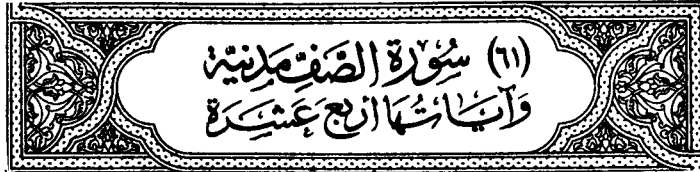 (٦١) سُورَةُ الصَّفِّ مَدَنِيَّة
وَآيَاتُهَا أَرْبَعَ عَشَرَة